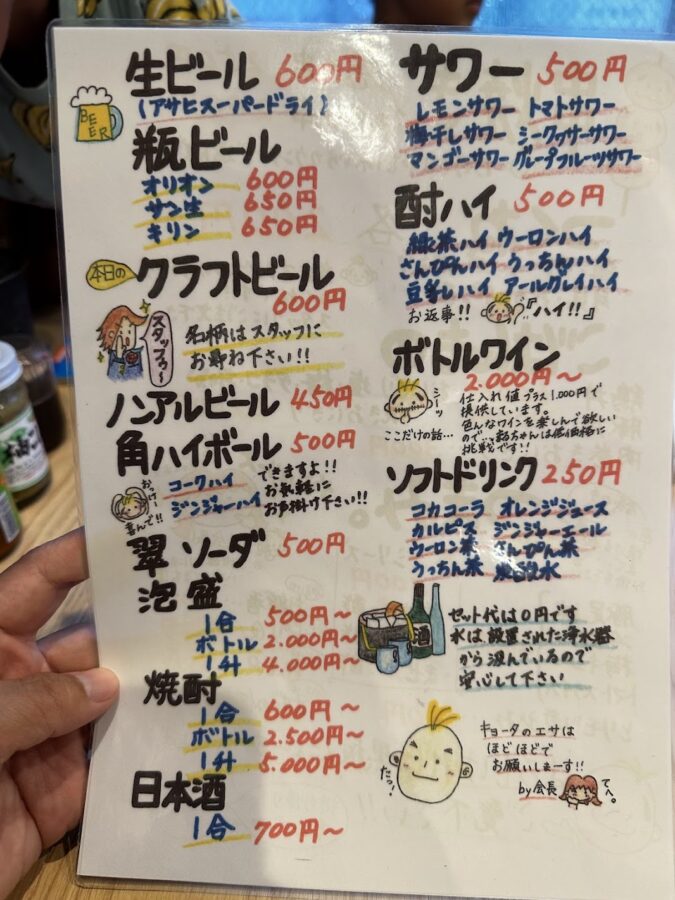 生ビール 600円
(アサヒスーパードライ)
BEER
瓶ビール
オリオン 600円
サン生 650円
キリン 650円
本日の
クラフトビール
600円
スタッフゥ〜
名柄はスタッフに
お尋ね下さい!!
ノンアルビール 450円
角ハイボール 500円
おっけー
喜んで!!
コークハイ
ジンジャーハイ
できますよ!!
お気軽に
お声掛け下さい!!
翠 ソーダ 500円
泡盛
1合 500円〜
ボトル 2.000円〜
1升 4.000円〜
焼酎
1合 600円〜
ボトル 2.500円〜
1升 5.000円〜
日本酒
1合 700円〜
サワー 500円
レモンサワー トマトサワー
梅干しサワー シークヮサーサワー
マンゴーサワー グレープフルーツサワー
酎ハイ 500円
緑茶ハイ ウーロンハイ
さんぴんハイ うっちんハイ
豆乳ハイ アールグレイハイ
お返事!! 『ハイ!!』
ボトルワイン
2.000円〜
シーッ
ここだけの話…
仕入れ値プラス1.000円で
提供しています。
色んなワインを楽しんで欲しい
ので…
ちゃんは低価格に
挑戦です!!
ソフトドリンク 250円
コカコーラ オレンジジュース
カルピス ジンジャーエール
ウーロン茶 さんぴん茶
うっちん茶 炭酸水
酒
セット代は0円です
水は設置された浄水器
から汲んでいるので
安心して下さい
だっ!
キョータのエサは
ほどほどで
お願いしまーす!!
by会長
てへ。